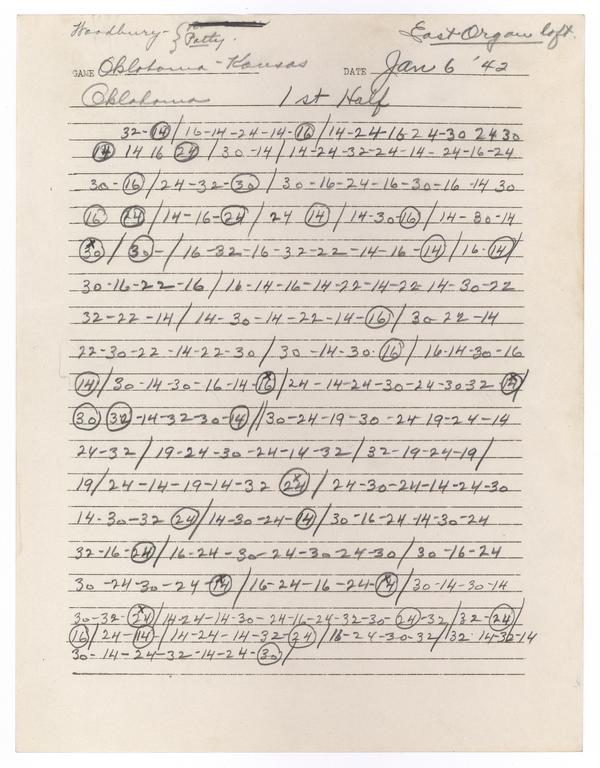 Woodbury - { Patty.
East Organ loft.
GAME Oklahoma - Kansas DATE Jan 6 '42
Oklahoma 1st Half
32-14/16-14-24-14-16/14-24-16 24-30 24 30
14 14 16 24/30-14/14-24-32-24-14-24-16-24
30-16/24-32-30/30-16-24-16-30-16-14 30
16 24/14-16-24/24 14/14-30-16/14-30-14
30/30-/16-32-16-32-22-14-16-14/16-14/
30-16-22-16/16-14-16-14-22-14-22 14-30-22
32-22-14/14-30-14-22-14-16/30 22-14
22-30-22-14-22-30/30-14-30-16/16-14-30-16
14/30-14-30-16-14-16/24-14-24-30-24-30-32-14/
30 32-14-32-30-14//30-24-19-30-24 19-24-14
24-32/19-24-30-24-14-32/32-19-24-19/
19/24-14-19-14-32 24/24-30-24-14-24-30
14-30-32 24/14-30-24-14/30-16-24-14-30-24
32-16-24/16-24-30-24-30-24-30/30-16-24
30-24-30-24-14/16-24-16-24-14/30-14-30-14
30-32-24/14-24-14-30-24-16-24-32-30-24-32/32-24/
16/24-14-/14-24-14-32-24/16-24-30-32/32 14-32-14
30-14-24-32-14-24-30/